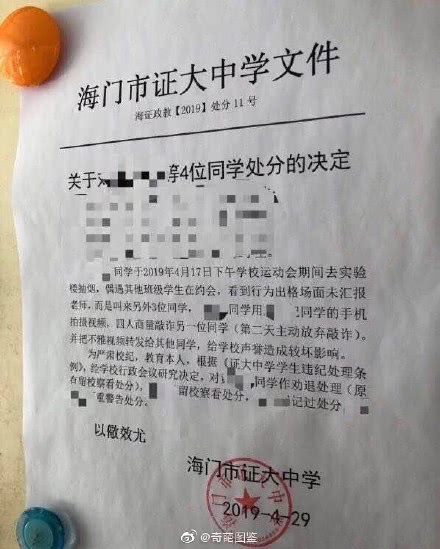 海门市证大中学文件
海证政教【2019】处分 11 号
关于 等4位同学处分的决定
同学于2019年4月17日下午学校运动会期间去实验
楼抽烟，偶遇其他班级学生在约会，看到行为出格场面未汇报
老师，而是叫来另外3位同学， 同学用 同学的手机
拍摄视频，四人商量敲诈另一位同学（第二天主动放弃敲诈）。
并把不雅视频转发给其他同学，给学校声誉造成较坏影响。
为严肃校纪，教育本人，根据《证大中学学生违纪处理条
例》，经学校行政会议研究决定，对 同学作劝退处理（原
有留校察看处分）， 留校察看处分， 记过处分，
重警告处分。
以儆效尤
海门市证大中学
2019-4-29
@奇葩图鉴